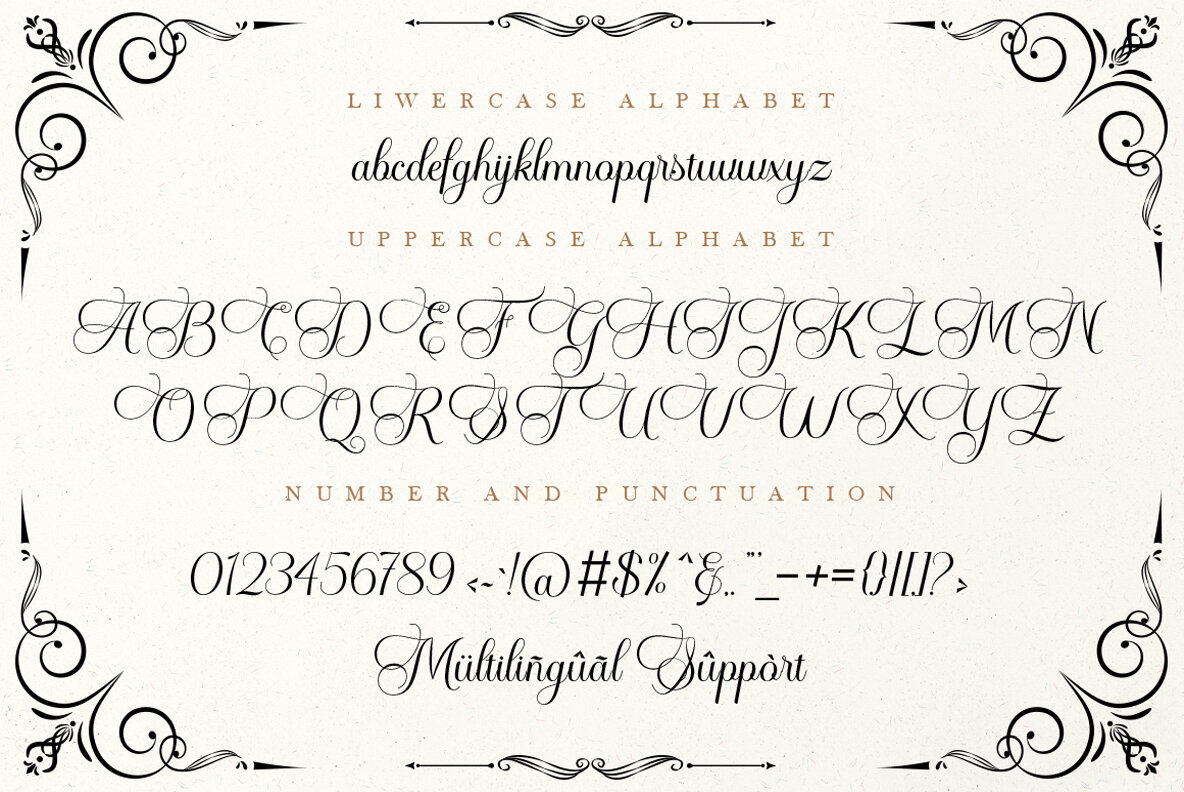 LIWERCASE ALPHABET
abcdefghijklmnopqrstuvwxyz
UPPERCASE ALPHABET
ABCDEFGHIJKLMN
OPQRSTUVWXYZ
NUMBER AND PUNCTUATION
0123456789 <~`!@#$%^&.."'_-+={}|[]?>
Mültilinñgûãl Sûppòrt